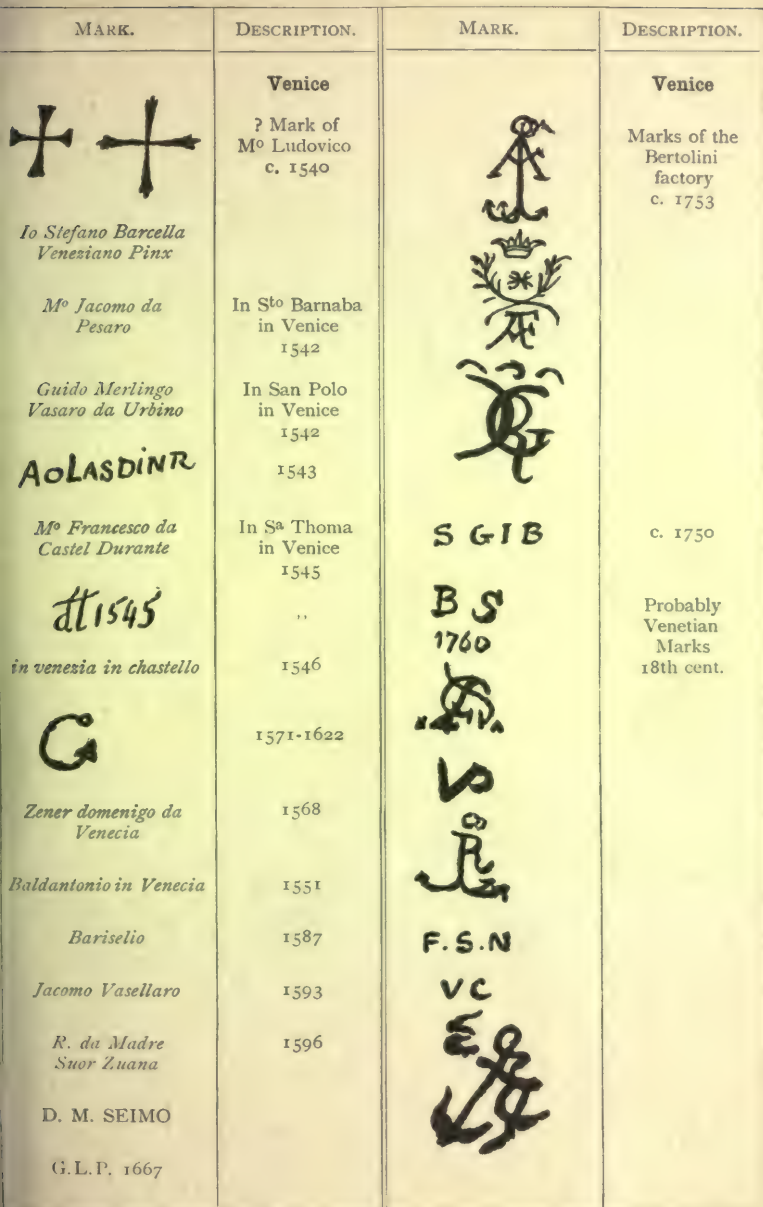 MARK.
DESCRIPTION.
MARK.
DESCRIPTION.
Venice
? Mark of
Mº Ludovico
c. 1540
Io Stefano Barcella
Veneziano Pinx
Mº Jacomo da
Pesaro
In Sto Barnaba
in Venice
1542
Guido Merlingo
Vasaro da Urbino
In San Polo
in Venice
1542
AOLASDINR
1543
Mº Francesco da
Castel Durante
In Sª Thoma
in Venice
1545
1545
,,
in venezia in chastello
1546
1571-1622
Zener domenigo da
Venecia
1568
Baldantonio in Venecia
1551
Bariselio
1587
Jacomo Vasellaro
1593
R. da Madre
Suor Zuana
1596
D. M. SEIMO
G.L.P. 1667
Venice
Marks of the
Bertolini
factory
c. 1753
S G I B
c. 1750
B S
1760
Probably
Venetian
Marks
18th cent.
F.S.N
V C